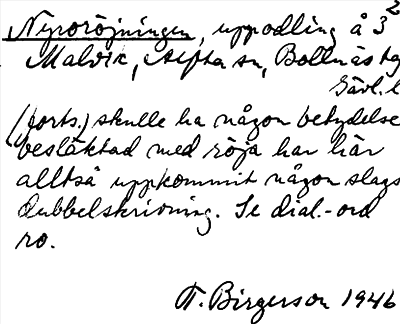 Nyroröjningen, uppodling å 3²
Malvik, Alfta sn, Bollnäs tg
Gävl. l
(forts.) skulle ha någon betydelse
besläktad med röja har här
alltså uppkommit någon slags
dubbelskrivning. Se dial.-ord
ro.
T. Birgerson 1946